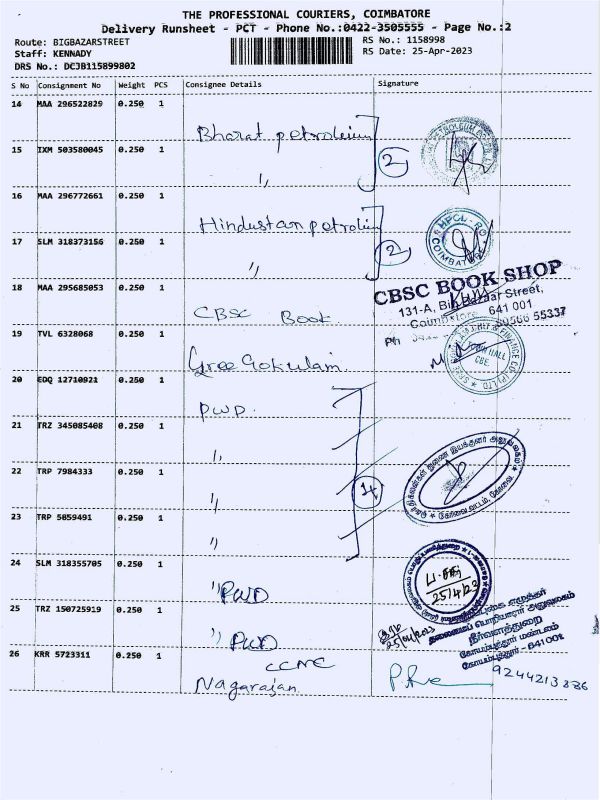 THE PROFESSIONAL COURIERS, COIMBATORE
Delivery Runsheet - PCT - Phone No.:0422-3505555 - Page No.:2
Route: BIGBAZARSTREET
RS No.: 1158998
Staff: KENNADY
RS Date: 25-Apr-2023
DRS No.: DCJB115899802
S No Consignment No Weight PCS Consignee Details Signature
14 MAA 296522829 0.250 1
Bharat petroleium
15 IXM 503580045 0.250 1
2
"
16 MAA 296772661 0.250 1
Hindustan petroleium
17 SLM 318373156 0.250 1
2
HPCL - RO
COIMBATORE
"
18 MAA 295685053 0.250 1
CBSC Book
CBSC BOOK SHOP
131-A, Big Bazaar Street,
Coimbatore 641 001
Ph 90566 55337
19 TVL 6328068 0.250 1
Gree Gokulam
TOWN HALL
CBE.
20 EDQ 12710921 0.250 1
PWD.
21 TRZ 345085408 0.250 1
"
22 TRP 7984333 0.250 1
"
23 TRP 5059491 0.250 1
"
24 SLM 318355705 0.250 1
" PWD
25/4/23
25 TRZ 150725919 0.250 1
" PWD
25/04/2023
தலைமைப் பொறியாளர் அலுவலகம்
நீர்வளத்துறை
கோயம்புத்தூர் மண்டலம்
கோயம்புத்தூர் - 641001
26 KRR 5723311 0.250 1
CCMC
Nagarajan
9244213886